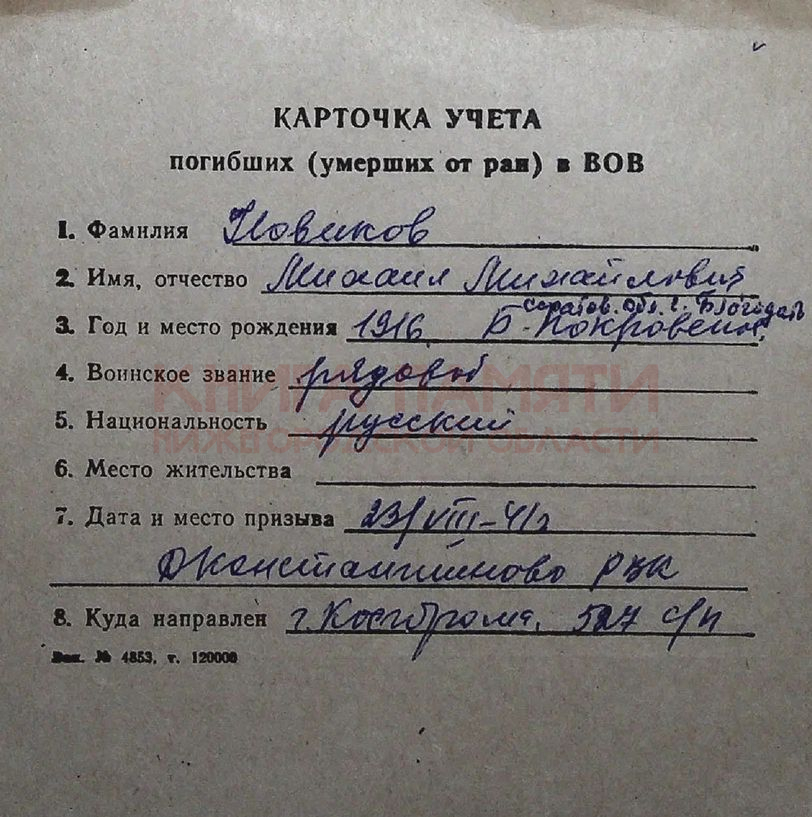 КАРТОЧКА УЧЕТА
погибших (умерших от ран) в ВОВ
1. Фамилия Новиков
2. Имя, отчество Михаил Михайлович
Саратов. обл. с. Благодать
3. Год и место рождения 1916. Б-Покровский,
4. Воинское звание рядовой
КНИГА ПАМЯТИ
5. Национальность русский
НИЖЕГОРОДСКОЙ ОБЛАСТИ
6. Место жительства
7. Дата и место призыва 23/VIII-41г
Дконстантиново РВК
8. Куда направлен г. Кострома, 527 с/п
Зак. № 4853, т. 120000